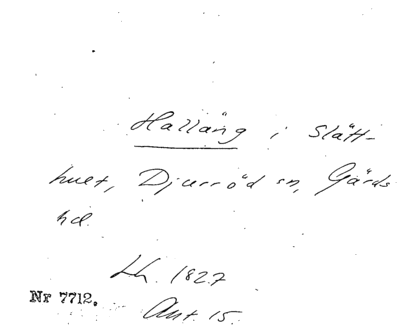 Halläng i Slätt-
hult, Djurröd sn, Gärds
hd.
Lh. 1827
Nr 7712.
Akt. 15.